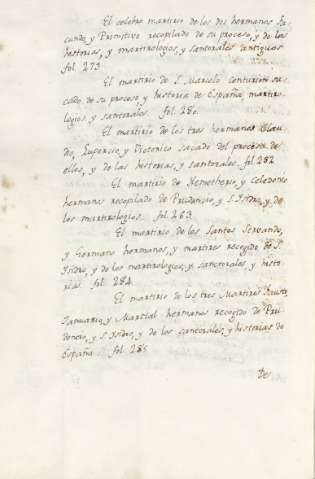 El celebre martirio de los dos hermanos Fa-
cundo, y Primitivo recopilado de su proceso, y de las
historias, y martirologios, y santorales antiguos
fol. 273.
El martirio de S. Marcelo Centurion sa-
cado de su proceso y historia de España, martiro-
logios y santorales. fol. 280.
El martirio de los tres hermanos Clau-
dio, Lupercio y Victorico sacado del proceso de
ellos, y de las historias, y santorales. fol. 282
El martirio de Hemetherio, y Celedonio
hermanos recopilado de Prudencio, y S. Isidro, y de
los martirologios. fol. 283.
El martirio de los Santos Servando,
y Germano hermanos, y martires recogido de S.
Isidro, y de los martirologios, y santorales, y histo-
rias. fol. 284.
El martirio de los tres Martires Fausto,
Januario, y Martial hermanos recogido de Pru-
dencio, y S. Isidro, y de los santorales, y historias de
España. fol. 285